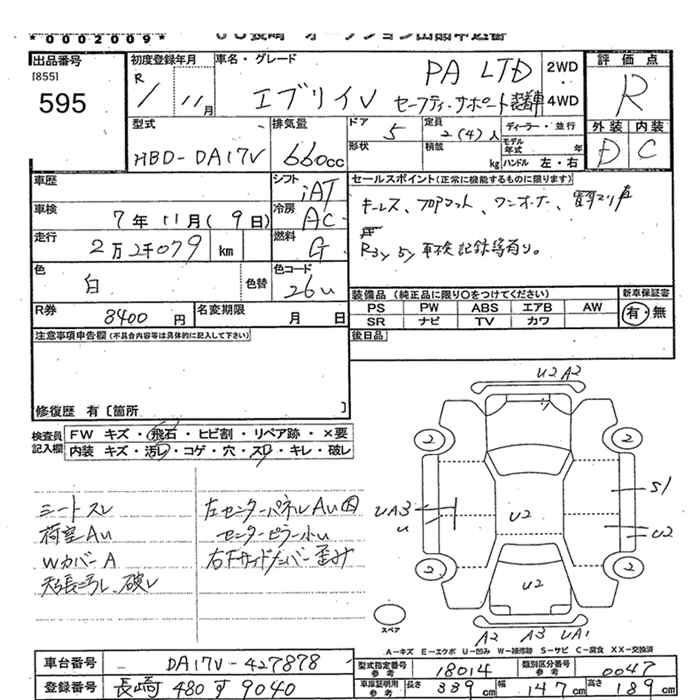 *0002009*
出品番号
[855]
595
初度登録年月
R
1/11月
車名・グレード
PA LTD
エブリイV セーフティサポート装着車
2WD
4WD
評価点
R
外装 内装
D C
型式
HBD-DA17V
排気量
660cc
ドア
5
定員
2(4)人
ディーラー・並行
形状
積載
kg
モデル年式
年
ハンドル 左・右
車歴
シフト
iAT
車検
7年11月(9日)
冷房
AC
走行
2万2千079
km
燃料
G
色
白
色替
色コード
26u
R券
8400円
名変期限
月 日
セールスポイント(正常に機能するものに限ります)
キーレス、
ワンオーナー、
R3y 5y 車検記録簿有り。
装備品(純正品に限り〇をつけてください)
PS PW ABS エアB AW
SR ナビ TV カワ
新車保証書
有・無
後日品
注意事項申告欄(不具合内容等は具体的に記入して下さい)
修復歴 有〔箇所 〕
検査員記入欄
FW キズ・飛石・ヒビ割・リペア跡・×要
内装 キズ・汚レ・コゲ・穴・スレ・キレ・破レ
シートスレ
荷室AU
Wカバー A
天張汚レ、破レ
左センターパネルAU
センターピラー小u
右下サイドメンバー歪み
U2 A2
2
2
UA3
u
S1
U2
U2
2
2
U2
A2 A3 UA1
スペア
A-キズ E-エクボ U-凹み W-補修跡 S-サビ C-腐食 XX-交換済
車台番号
DA17V-427878
登録番号
長崎 480 す 9040
型式指定番号
参考
18014
類別区分番号
参考
0047
車庫証明用
参考
長さ 339cm
幅 147cm
高さ 189cm